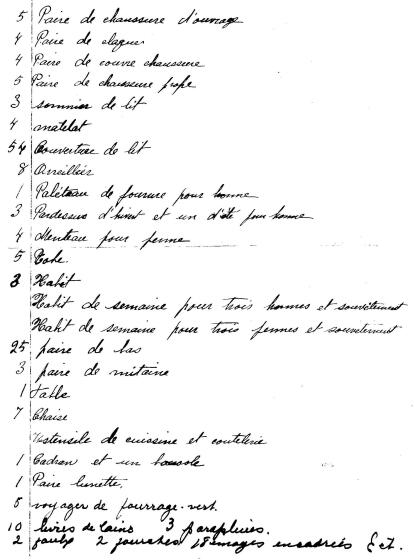 5 Paire de chaussure d'ouvrage
4 Paire de claques
4 Paire de couvre chaussure
5 Paire de chaussure propre
3 sommier de lit
4 matelat
54 Couverture de lit
8 Oreiller
1 Paléteau de fourure pour homme
3 Pardessus d'hivert et un d'été pour homme
4 Menteau pour femme
5 Robe
3 Habit
Habit de semaine pour trois hommes et souvêtement
Habit de semaine pour trois femmes et souvêtement
25 paire de bas
3 paire de mitaine
1 table
7 Chaise
Ustensile de cuissine et coutelerie
1 Cadran et un boussole
1 Paire lunette.
5 voyages de fourrage-vert.
10 livres de laine 3 parapluies.
2 2 fourches 18 images encadriés & ct.